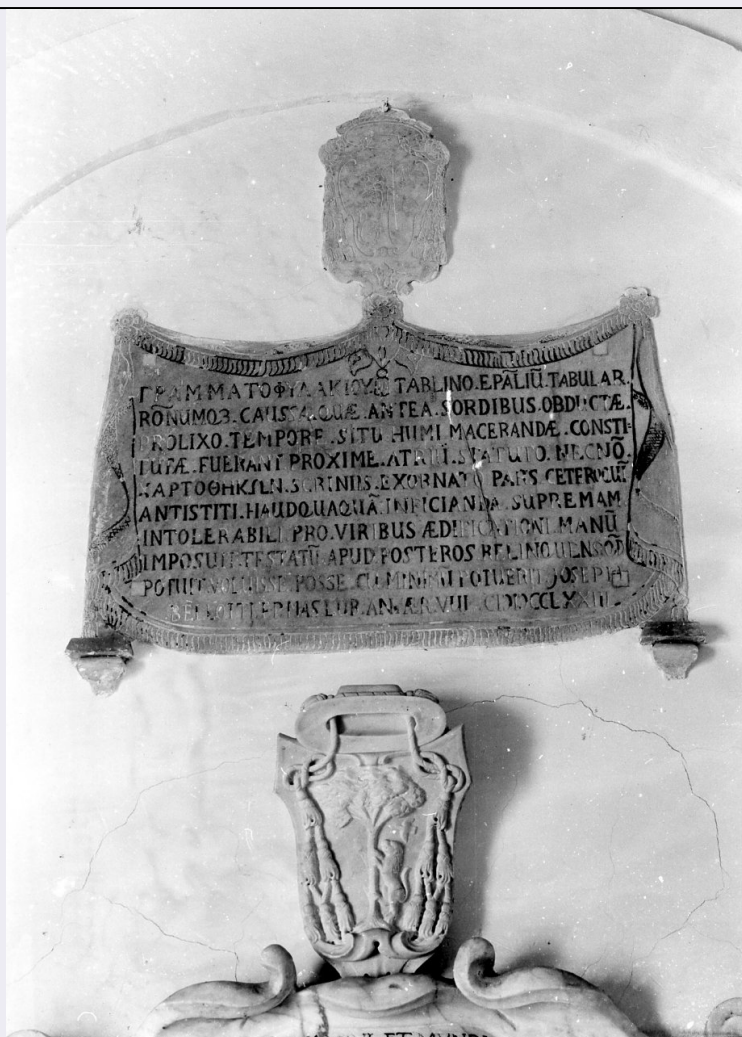 ΓΡΑΜΜΑΤΟΦΥΛΑΚΙΟΥ TABLINO.EPĀLIŪ.TABULAR.
RŌNUMQ3.CAUSSA.QUÆ.ANTEA.SORDIBUS.OBDUCTÆ.
PROLIXO.TEMPORE.SITU HUMI MACERANDÆ.CONSTI-
TUTÆ.FUERANT PROXIME.ATRII.STATUTO.NECNŌ.
SCRINIIS.EXORNATO PARS CETEROQUI
ANTISTITI.HAUDQUAQUĀ.INFICIANDA.SUPREMAM
INTOLERABILI PRO.VIRIBUS ÆDIFICATIONI.MANŪ
IMPOSUIT.TESTATŪ APUD POSTEROS RELINQUENS
POTUIT VOLUISSE POSSE MINIMŪ POTUERIT JOSEPH
ÆR.VUL.
ET